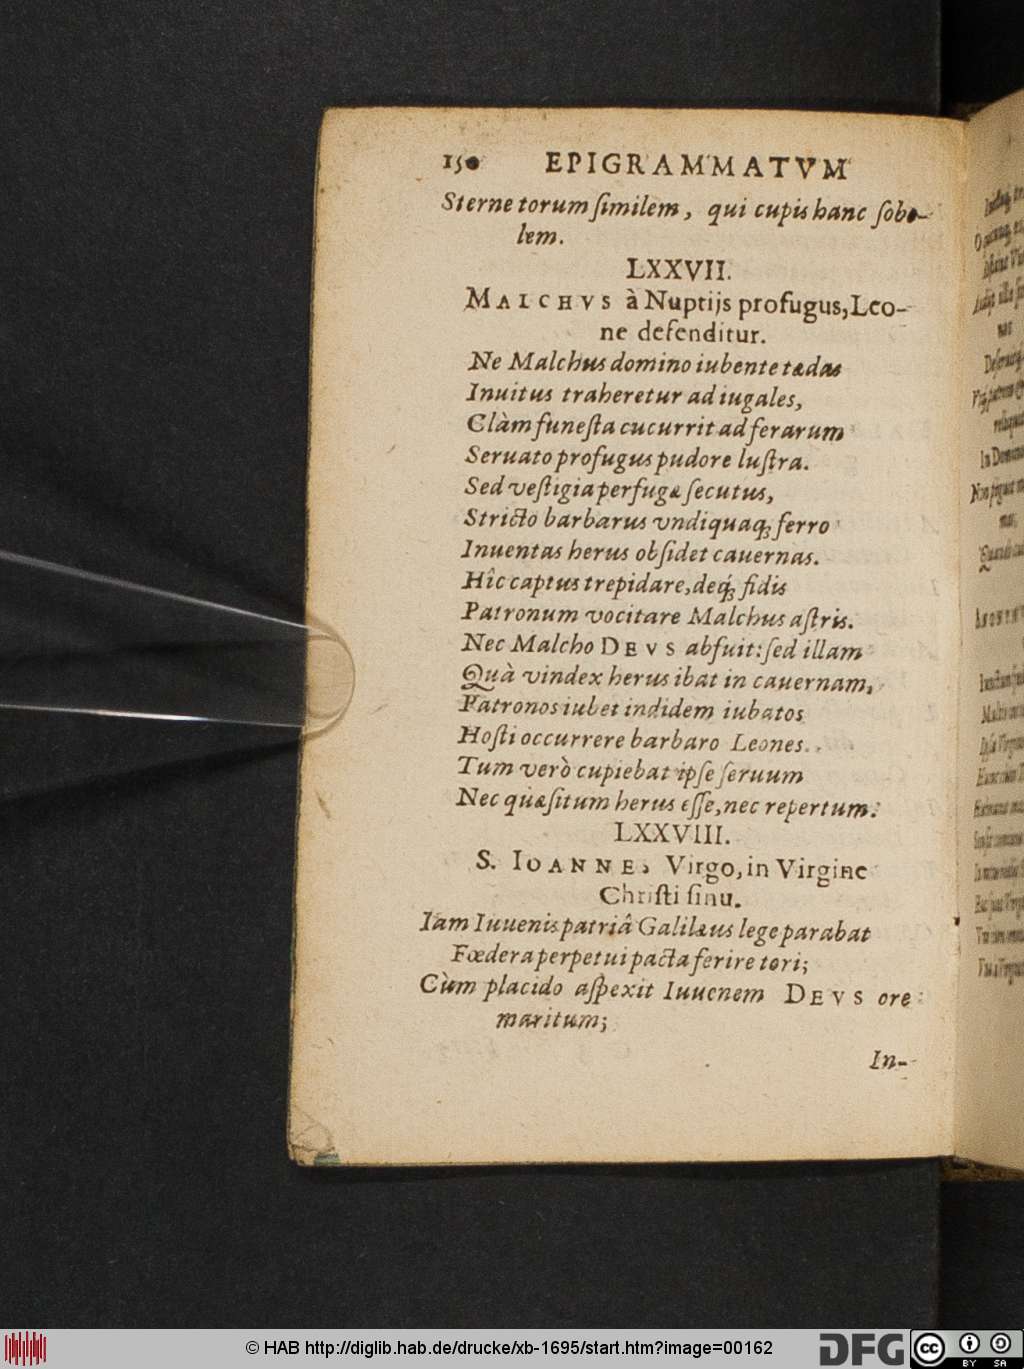 150 EPIGRAMMATVM
Sterne torum ſimilem, qui cupis hanc ſobo-
lem.
LXXVII.
MALCHVS à Nuptijs profugus, Leo-
ne defenditur.
Ne Malchus domino iubente tædas
Inuitus traheretur ad iugales,
Clàm funeſta cucurrit ad ferarum
Seruato profugus pudore luſtra.
Sed veſtigia perfugæ ſecutus,
Stricto barbarus vndiquaq; ferro
Inuentas herus obſidet cauernas.
Hîc captus trepidare, deq́; fidis
Patronum vocitare Malchus aſtris.
Nec Malcho DEVS abfuit: ſed illam
Quà vindex herus ibat in cauernam,
Patronos iubet indidem iubatos
Hoſti occurrere barbaro Leones.
Tum verò cupiebat ipſe ſeruum
Nec quæſitum herus eſſe, nec repertum.
LXXVIII.
S. IOANNES Virgo, in Virgine
Chriſti ſinu.
Iam Iuuenis patriâ Galilæus lege parabat
Fœdera perpetui pacta ferire tori;
Cùm placido aſpexit Iuuenem DEVS ore
maritum;
In-
© HAB http://diglib.hab.de/drucke/xb-1695/start.htm?image=00162
DFG
cc
BY SA